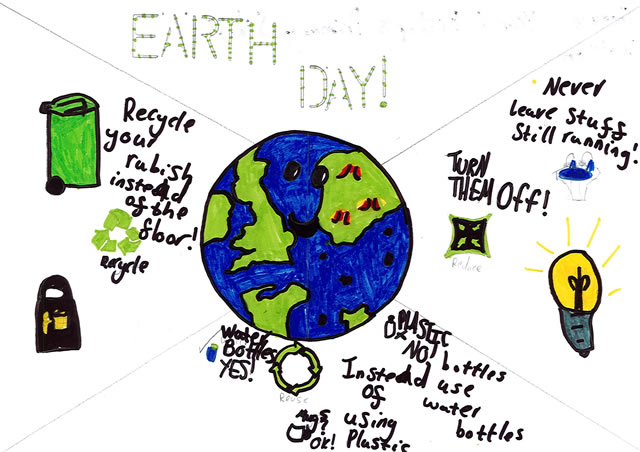 EARTH
DAY!
Recycle
your
rubish
instead
of the
floor!
Recycle
Never
leave stuff
still running!
TURN
THEM Off!
Reduce
Water
Bottles
YES!
Reuse
PLASTIC
NO!
Instead
of
using
Plastic
bottles
use
water
bottles
Mugs
OK!